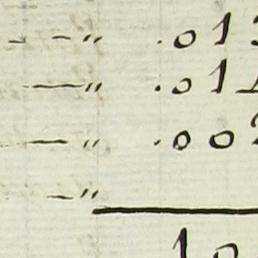 - -„ .013
—„ .01
—„ .002
—„
10